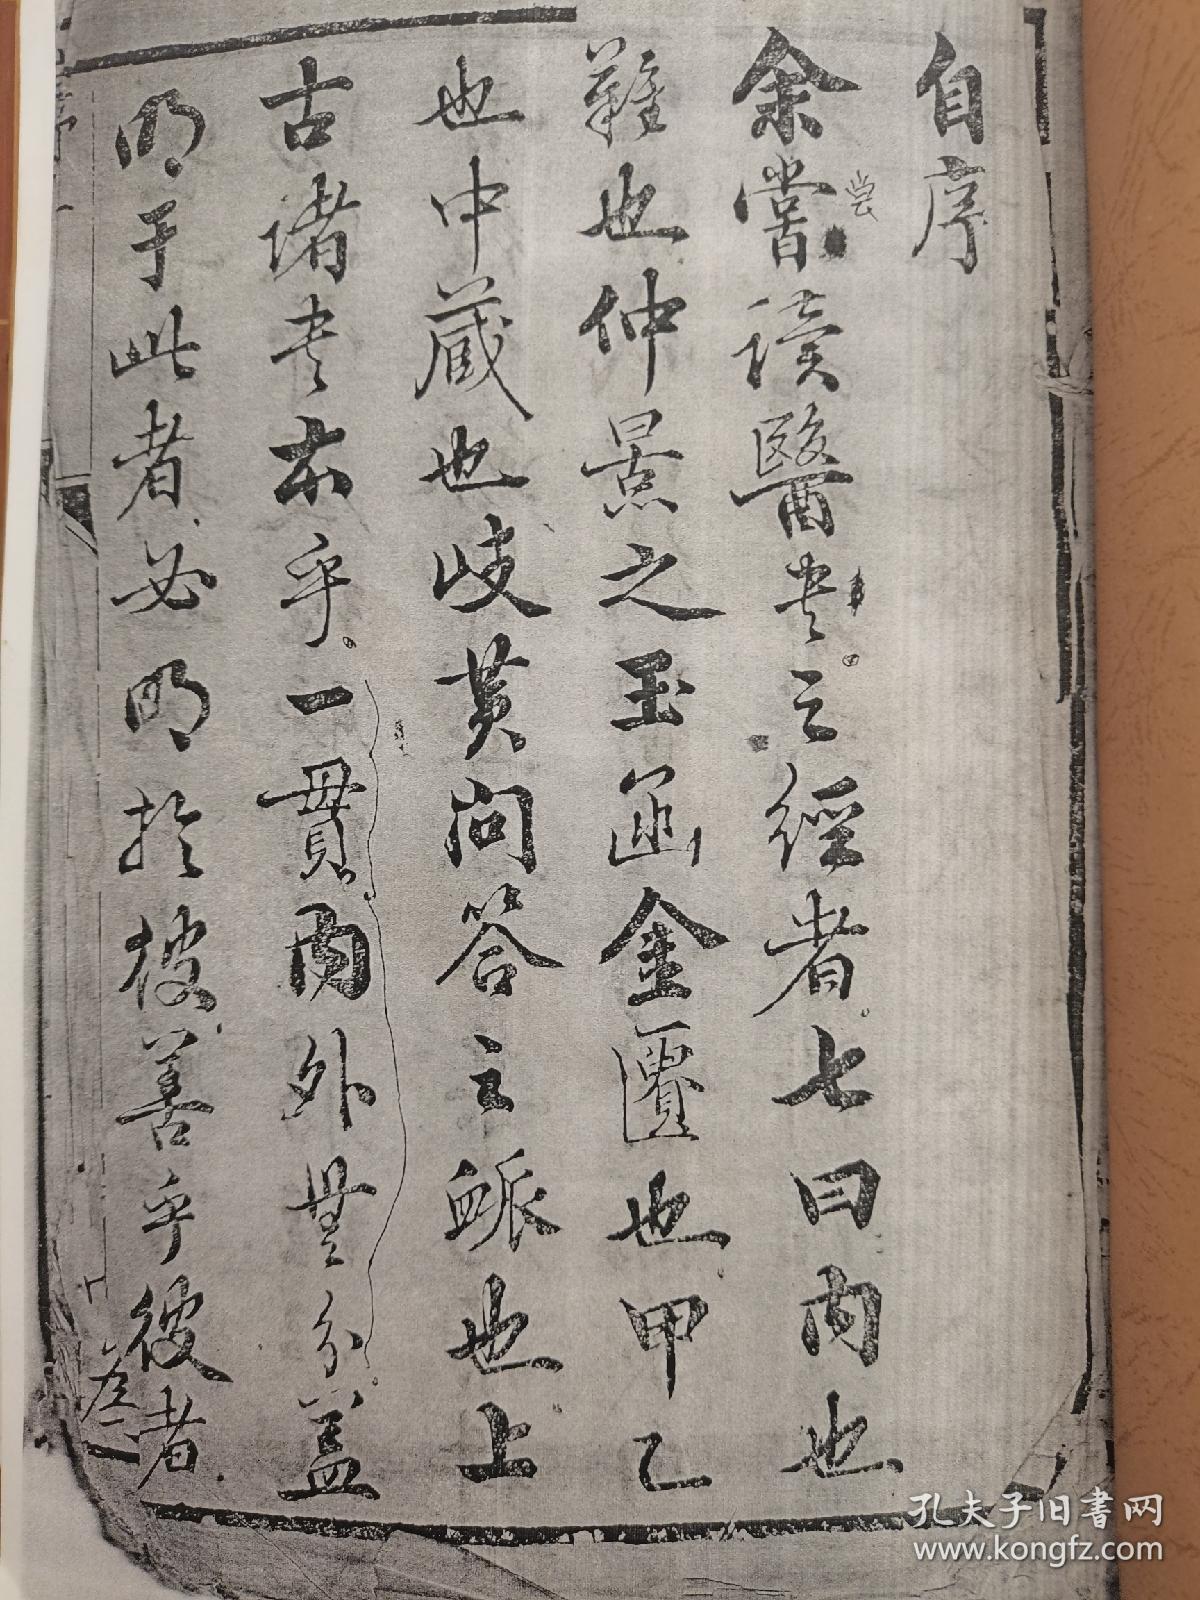 自序
余嘗读醫书之經者七曰内也
難也仲景之玉函金匱也甲乙
也中藏也岐黄问答之脈也上
古诸书本乎一貫内外無分盖
明于此者必明於彼善乎彼者
尝
孔夫子旧書网
www.kongfz.com